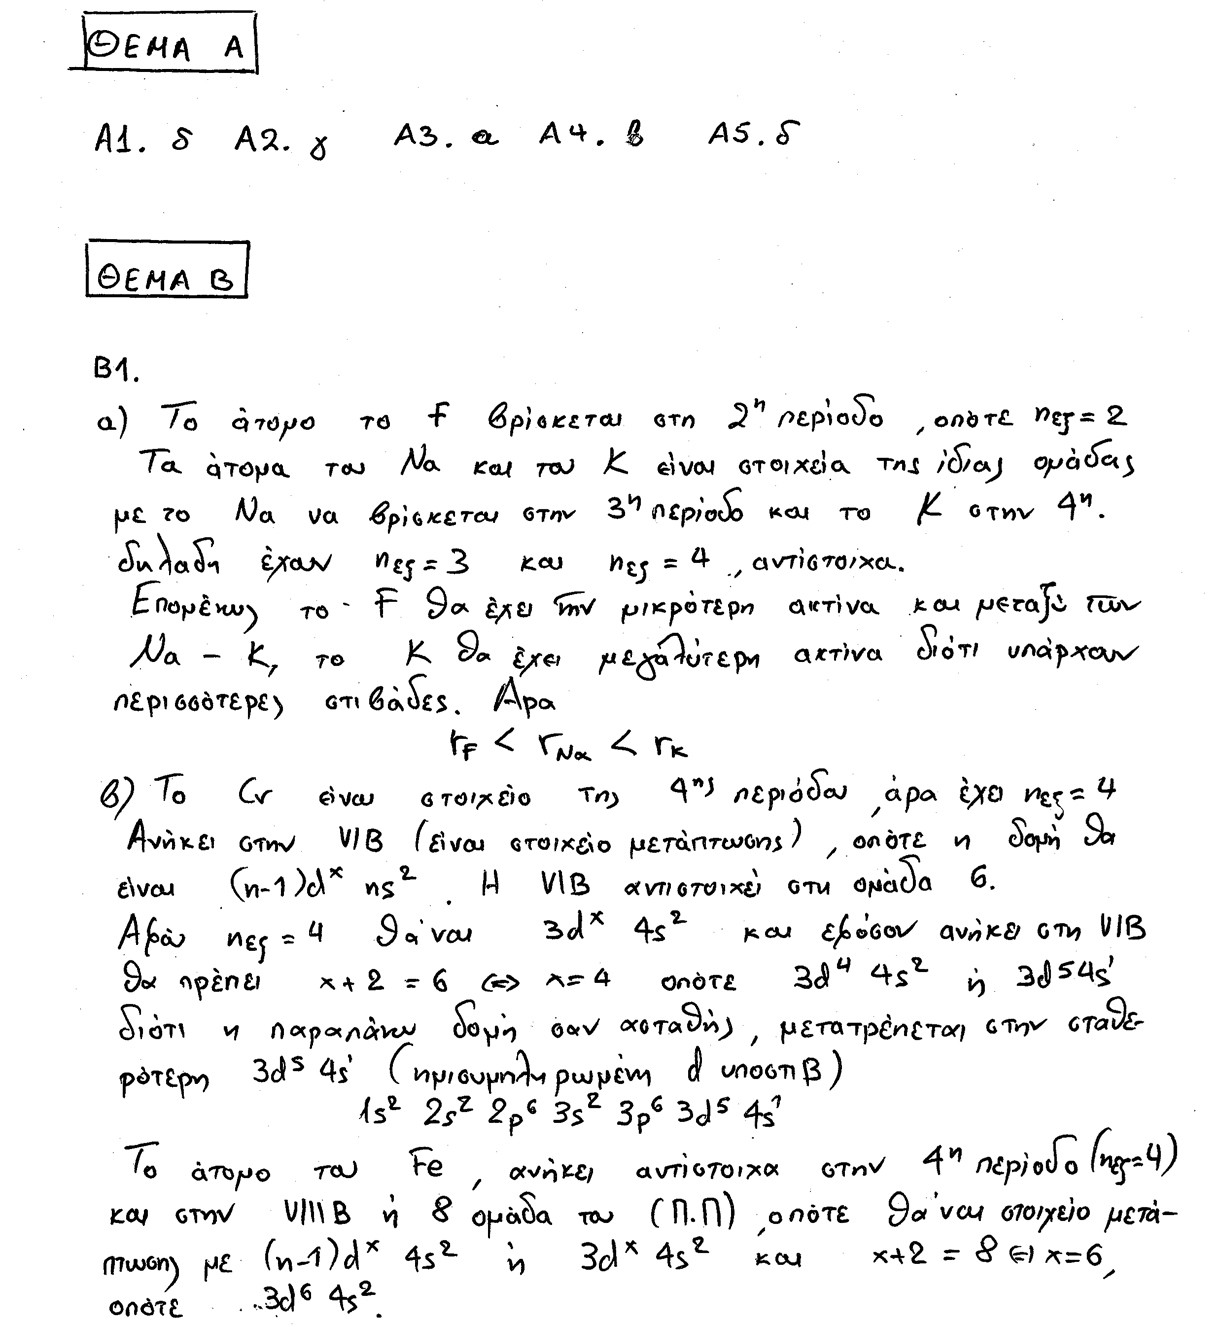 ΘΕΜΑ Α
Α1. δ Α2. γ Α3. α Α4. β Α5. δ
ΘΕΜΑ Β
Β1.
α) Το άτομο το F βρίσκεται στη 2η περίοδο, οπότε nεξ = 2
Τα άτομα του Na και του K είναι στοιχεία της ίδιας ομάδας
με το Na να βρίσκεται στην 3η περίοδο και το K στην 4η.
δηλαδή έχουν nεξ = 3 και nεξ = 4, αντίστοιχα.
Επομένως το F θα έχει την μικρότερη ακτίνα και μεταξύ των
Na - K, το K θα έχει μεγαλύτερη ακτίνα διότι υπάρχουν
περισσότερες στιβάδες. Άρα
rF < rNa < rK
β) Το Cr είναι στοιχείο της 4ης περιόδου, άρα έχει nεξ = 4
Ανήκει στην VIB (είναι στοιχείο μετάπτωσης), οπότε η δομή θα
είναι (n-1)dˣ ns². Η VIB αντιστοιχεί στη ομάδα 6.
Αφού nεξ = 4 θα 'ναι 3dˣ 4s² και εφόσον ανήκει στη VIB
θα πρέπει x + 2 = 6 <=> x = 4 οπότε 3d⁴ 4s² ή 3d⁵4s¹
διότι η παραπάνω δομή σαν ασταθής, μετατρέπεται στην σταθε-
ρότερη 3d⁵ 4s¹ (ημισυμπληρωμένη d υποστιβ)
1s² 2s² 2p⁶ 3s² 3p⁶ 3d⁵ 4s¹
Το άτομο του Fe, ανήκει αντίστοιχα στην 4η περίοδο (nεξ=4)
και στην VIIIB ή 8 ομάδα του (Π.Π), οπότε θα 'ναι στοιχείο μετά-
πτωσης με (n-1)dˣ 4s² ή 3dˣ 4s² και x+2 = 8 <=> x=6,
οπότε ..3d⁶ 4s².